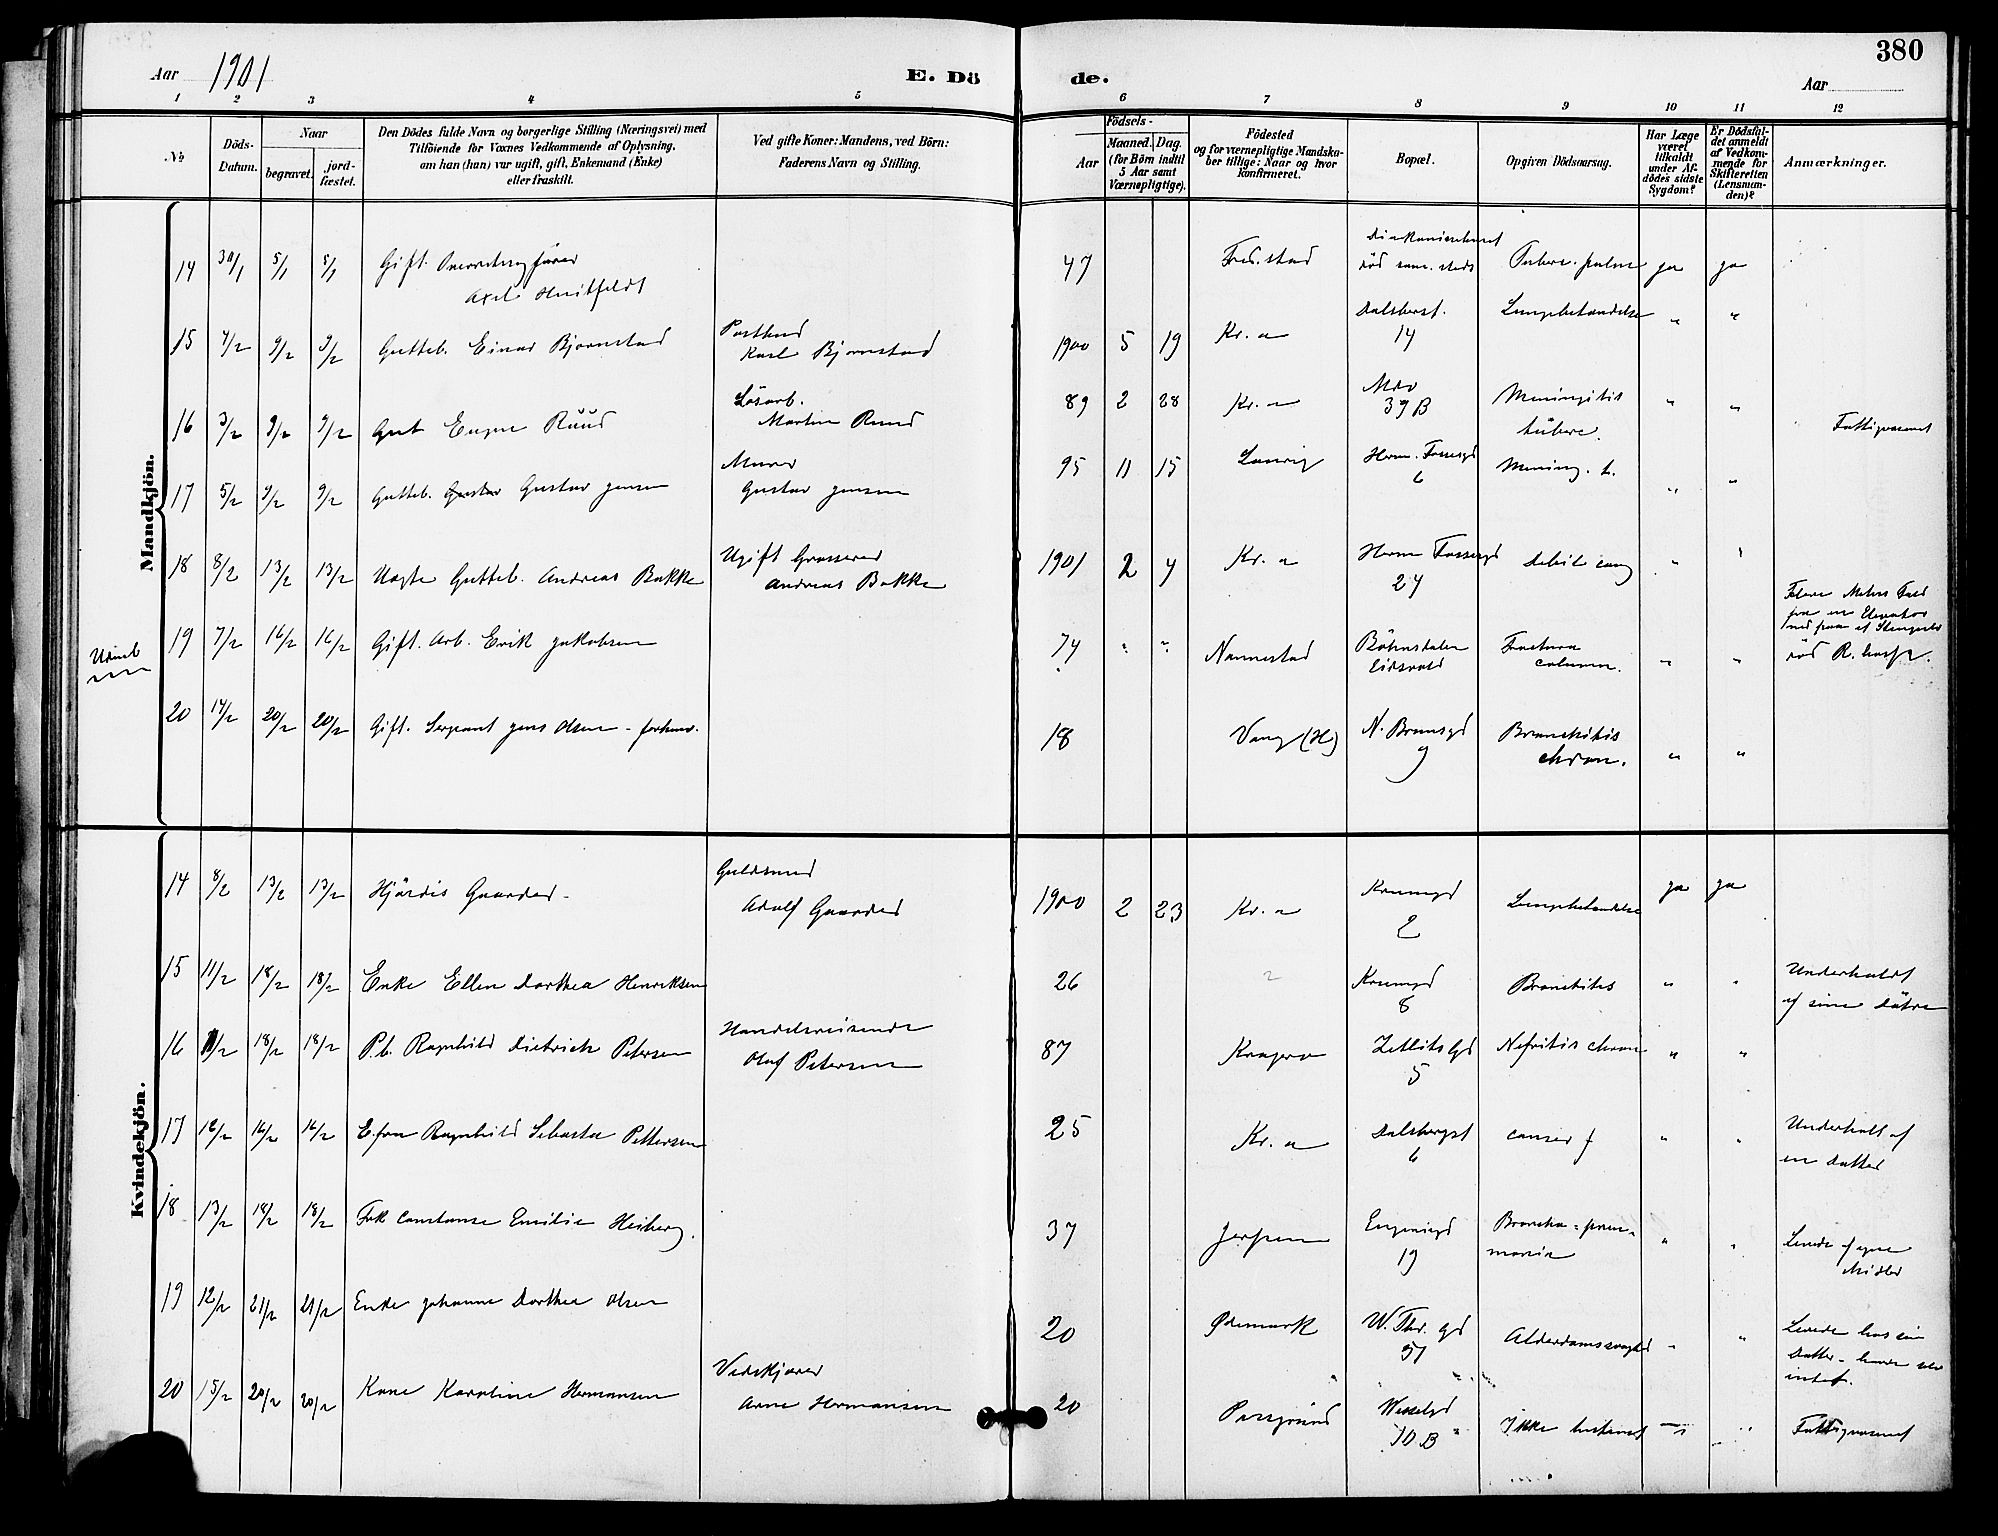 380
Aar 1901 E. Dö de. Aar
1 2 3 4 5 6 7 8 9 10 11 12
No
Döds-Datum.
Naar
begravet.
jord-fæstet.
Den Dödes fulde Navn og borgerlige Stilling (Næringsvei) med
Tilföiende for Voxnes Vedkommende af Oplysning,
om han (hun) var ugift, gift, Enkemand (Enke)
eller fraskilt.
Ved gifte Koner: Mandens, ved Börn:
Faderens Navn og Stilling.
Födsels-
Aar
Maaned.
Dag.
(for Börn indtil
5 Aar samt
Værnepligtige).
Födested
og for værnepligtige Mandska-
ber tillige: Naar og hvor
konfirmeret.
Bopæl.
Opgiven Dödsaarsag.
Har Læge
været
tilkaldt
under Af-
dödes sidste
Sygdom?
Er Dödsfal-
det anmeldt
af Vedkom-
mende for
Skifteretten
(Lensman-
den)?
Anmærkninger.
Mandkjön.
14 30/1 5/1 5/1 Gift. 47 Fred.stad ja ja
Axel Huitfeldt
15 7/2 9/2 9/2 Gutteb. Einar Bjørnstad Postbud 1900 5 19 Kr. a Dalsbergst. Lungebetændelse " "
Karl Bjørnstad 14
16 3/2 9/2 9/2 Gut Ruud Løsarb. 89 2 28 Kr. a Meningitis " " Fattigvæsenet
Martin Ruud 39 B tuberc.
17 5/2 9/2 9/2 Gutteb. Gustav Gustav Jensen Murer 95 11 15 Laurvig Herm. Fossgd Mening. t. " "
Gustav Jensen 6
18 8/2 13/2 13/2 Uægte Gutteb. Andreas Bakke Ugift Grosserer 1901 2 4 Kr. a Herm Fossegd Debil. cong "
Andreas Bakke 24
19 7/2 16/2 16/2 Gift. Arb. Erik Jakobsen 74 " " Nannestad Bøhnsdalen Fractura " "
Eidsvold column.
20 14/2 20/2 20/2 Gift. Sergeant Jens Olsen - forhenv. 18 Vang (H) N. Brunsgd Bronchitis " "
9 chron.
Kvindekjön.
14 8/2 13/2 13/2 Hjørdis Gaarder - Guldsmed 1900 2 23 Kr. a Krumgd Lungebetændelse ja ja
Adolf Gaarder 2
15 11/2 18/2 18/2 Enke Ellen Dorthea Henriksen 26 Krumgd Bronchitis " " Underholdt
8 af sine Døtre
16 18/2 18/2 P.b. Ragnhild Dietrichs Petersen Handelsreisende 87 Kragerø Zetlitsgd Nefritis chron " "
Olaf Petersen 5
17 12/2 16/2 16/2 E.fru Ragnhild Pettersen 25 Kr. a Dalsbergst cancer " " Underholdt af
6 en Datter
18 13/2 18/2 18/2 Frk Constanse Emilie Heiberg. 37 Eugeniegd Broncho-pneu- " " Levede af egne
19 monia Midler
19 12/2 21/2 21/2 Enke Johanne Dorthea Olsen 20 Ødemark W. Thr. gd Alderdomssvaghed " " Levede hos sin
51 Datter -
intet.
20 15/2 20/2 20/2 Kone Karoline Hermansen Vedskjærer 20 Porsgrund Wesselsgd Ikke Fattigvæsenet
Arne Hermansen 10 B